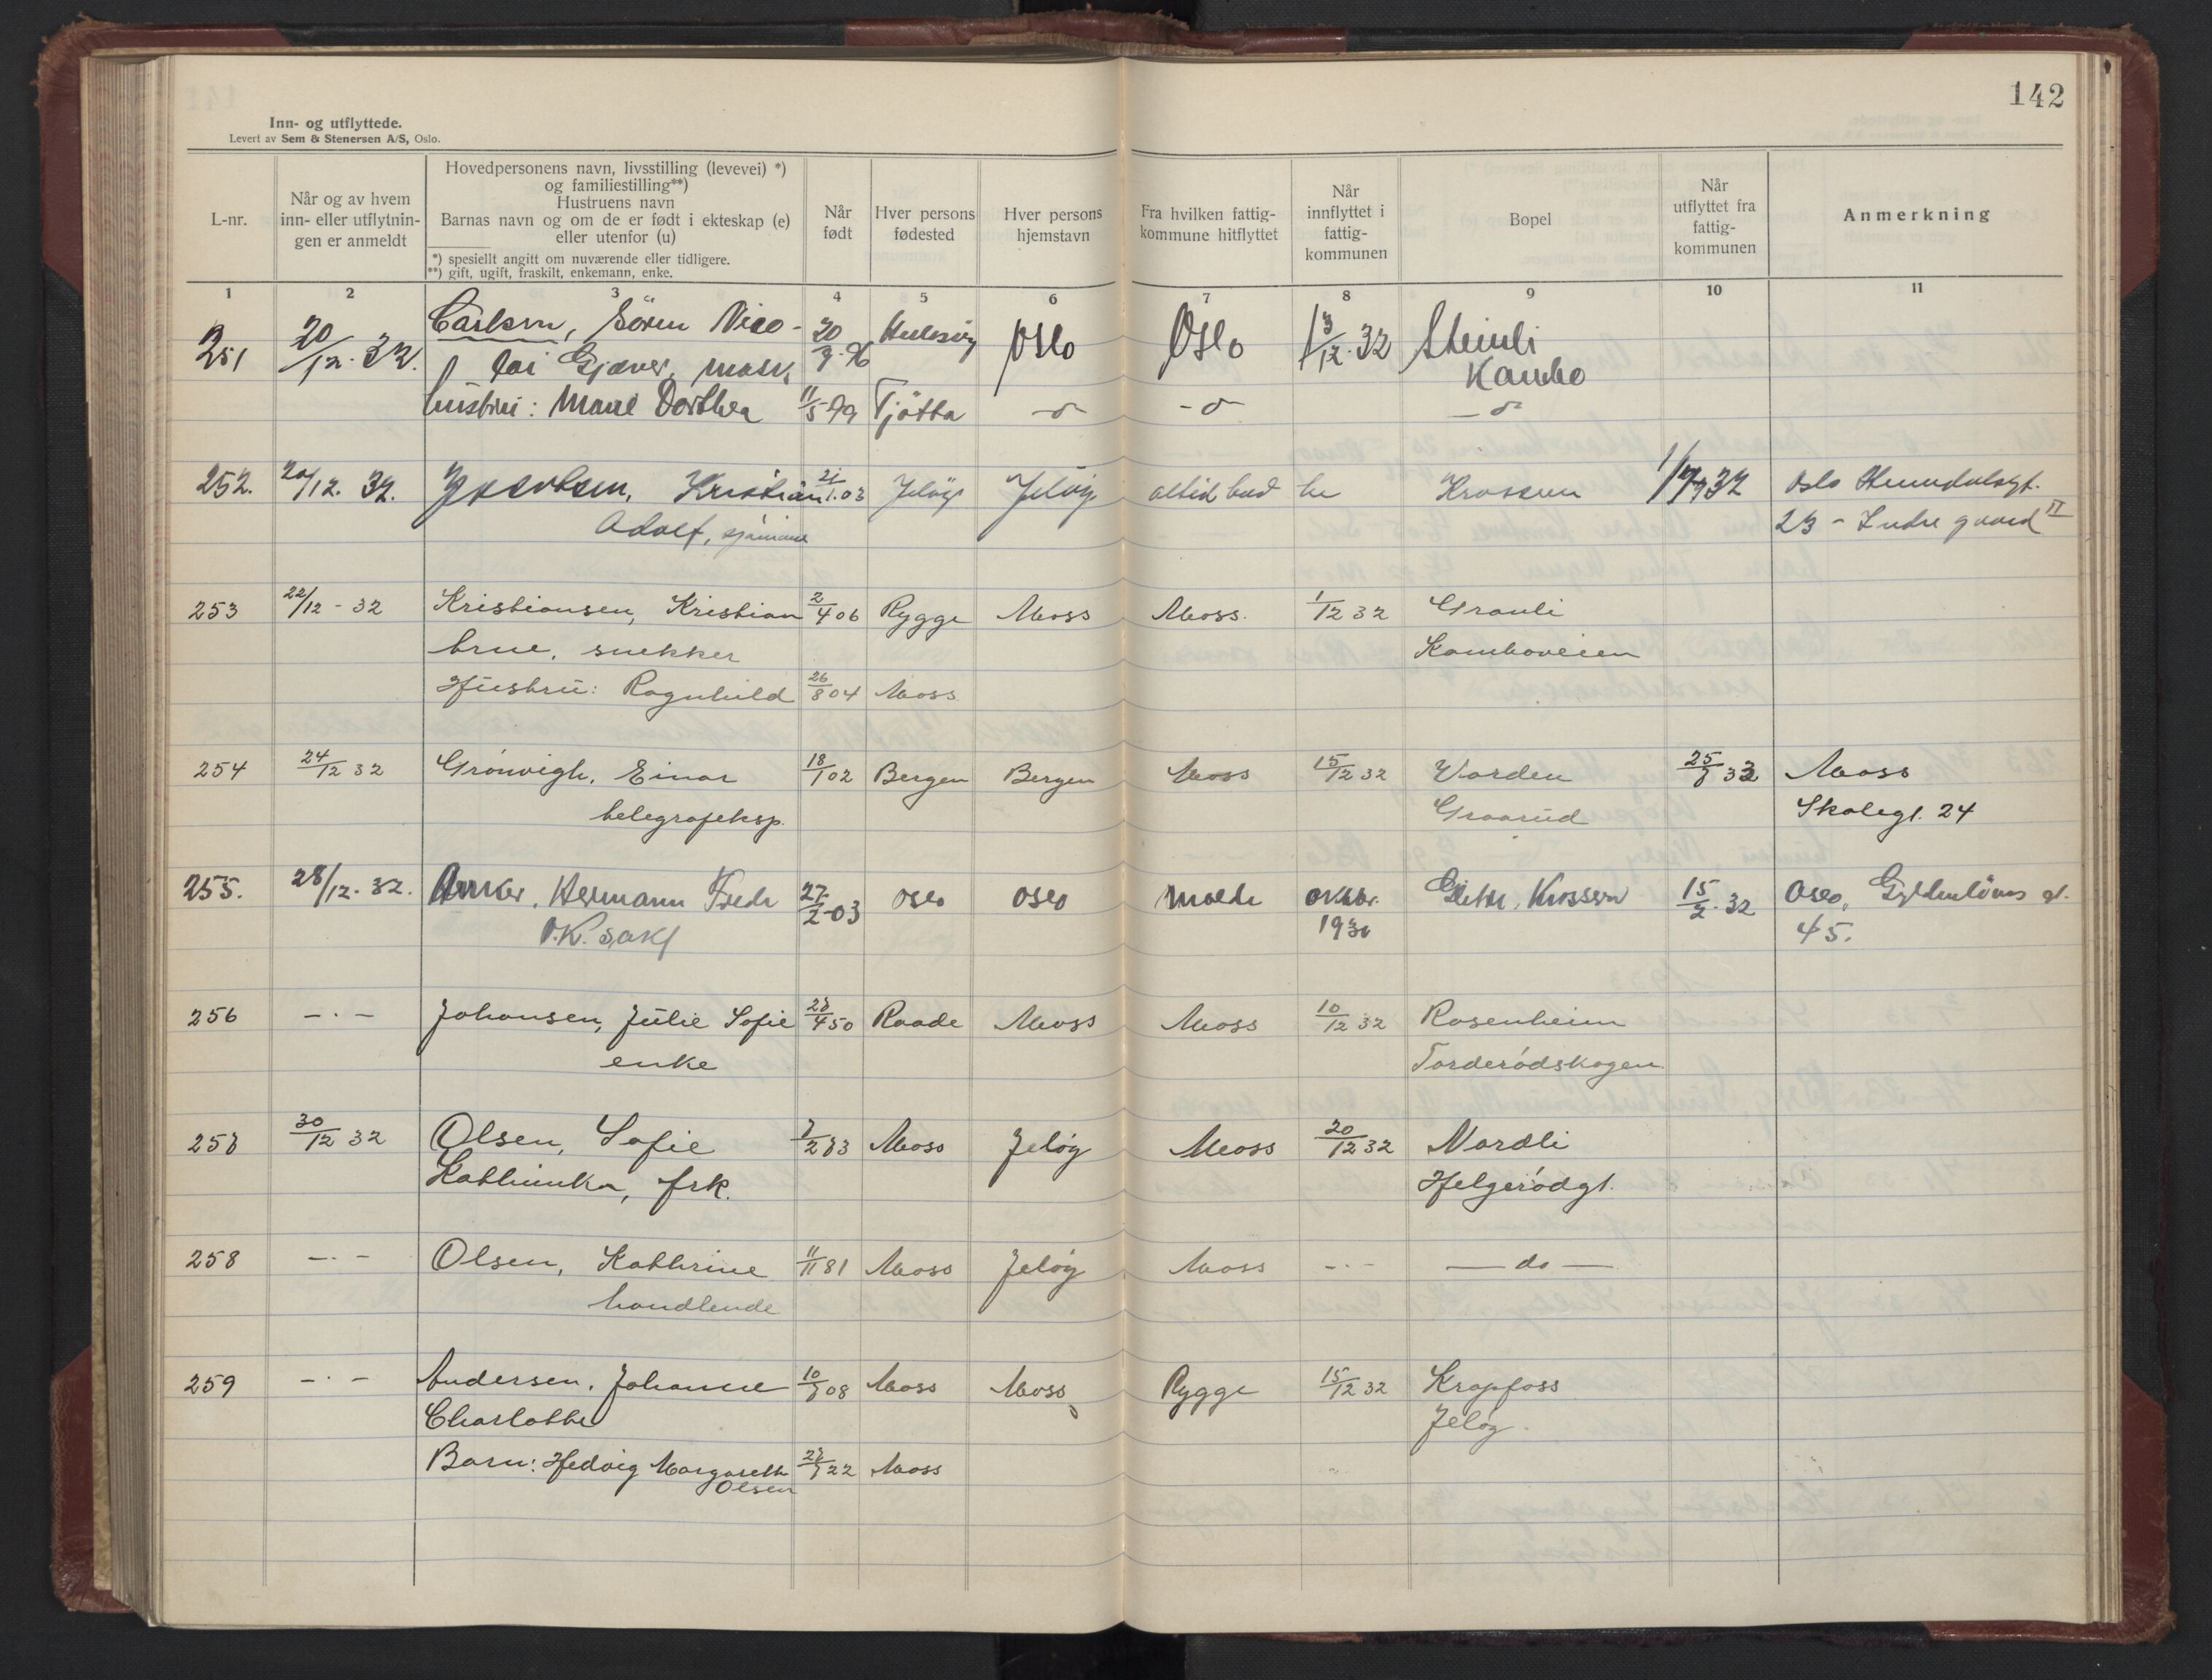 142
Inn- og utflyttede.
Levert av Sem & Stenersen A/S, Oslo.
L-nr.
Når og av hvem
inn- eller utflytnin-
gen er anmeldt
Hovedpersonens navn, livsstilling (levevei) *)
og familiestilling**)
Hustruens navn
Barnas navn og om de er født i ekteskap (e)
eller utenfor (u)
*) spesielt angitt om nuværende eller tidligere.
**) gift, ugift, fraskilt, enkemann, enke.
Når
født
Hver persons
fødested
Hver persons
hjemstavn
Fra hvilken fattig-
kommune hitflyttet
Når
innflyttet i
fattig-
kommunen
Bopel
Når
utflyttet fra
fattig-
kommunen
Anmerkning
1 2 3 4 5 6 7 8 9 10 11
251 20/12. 32. Carlsen, Sören Nico- Oslo Oslo 13/12. 32 Steinli
lai Gjæver, Kambo
hustru: Marie Dorthea 11/5 99 Tjötta -o- -o- -o-
252. 20/12. 32. Jacobsen, Kristian 21/1. 03 Jelöy Jelöy altid bodd he Krossern Oslo
Adolf, sjömann 23 - Indre gaard II
253 22/12 - 32 Kristiansen, Kristian 2/4 06 Rygge Moss Moss. 1/12 32 Granli
Arne, snekker Kamboveien
Hustru: Ragnhild 26/8 04 Moss
254 24/12 32 Grønvigh, Einar 18/1 02 Bergen Bergen Moss 15/12 32 Varden 25/7 33 Moss
telegrafeksp. Graarud Skolegt. 24
255. 28/12. 32. Anker, Hermann Fredr 27/2-03 Oslo Oslo Molde oktbr. Krossern 15/2. 32 Oslo, Gyldenlöves gt.
O.R. sakf 45.
256 - . - Johansen, Julie Sofie 27/4 50 Raade Moss Moss 10/12 32 Rosenheim
enke Torderødskogen
257 30/12 32 Olsen, Sofie 7/2 73 Moss Jeløy Moss 20/12 32 Nordli
Kathinka, frk. Helgerødgt.
258 - . - Olsen, Kathrine 11/11 81 Moss Jeløy Moss - . - — do —
handlende
259 - . - Andersen, Johanne 10/7 08 Moss Moss Rygge 15/12 32 Krapfoss
Charlotte Jeløy.
Barn: Hedvig Margareth 27/7 22 Moss
Olsen